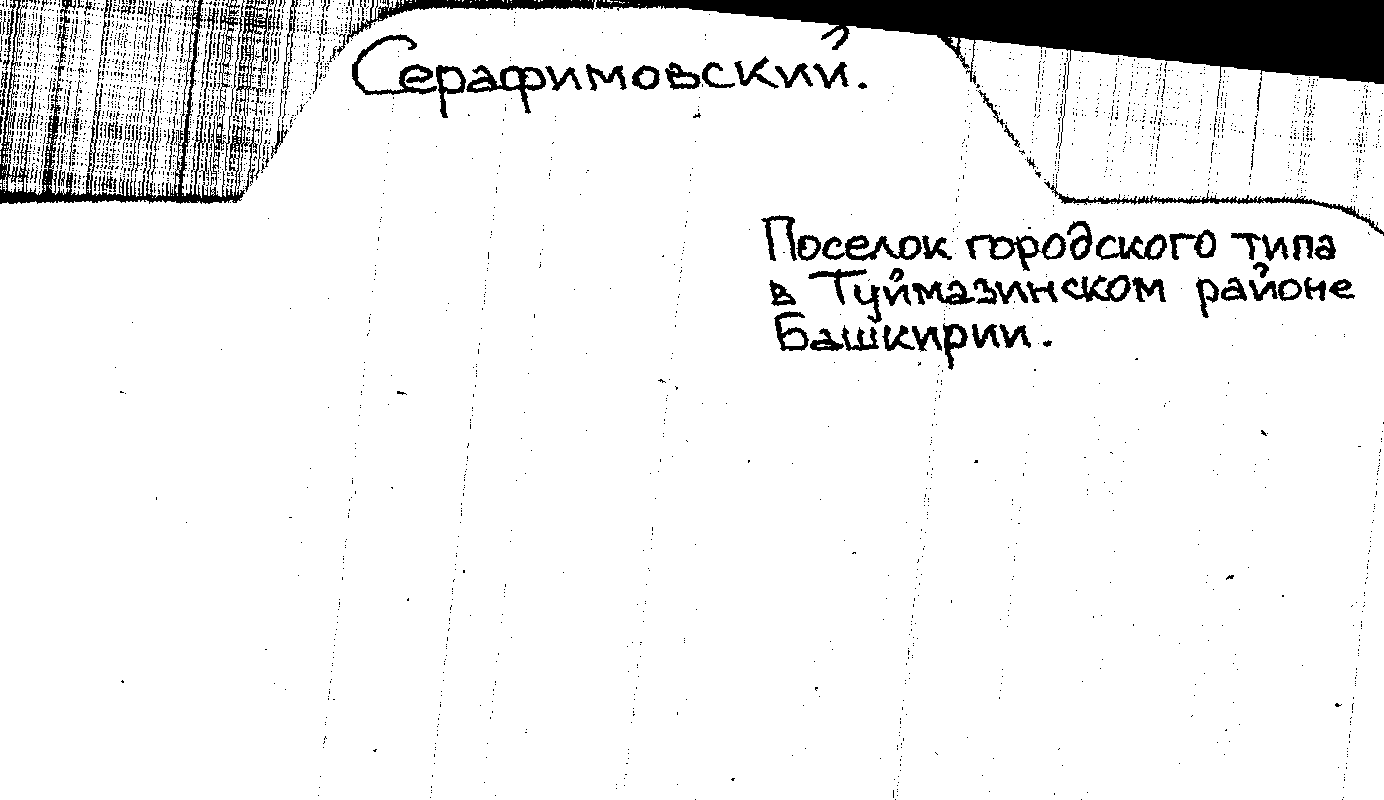 Серафимовский.
Поселок городского типа
в Туймазинском районе
Башкирии.